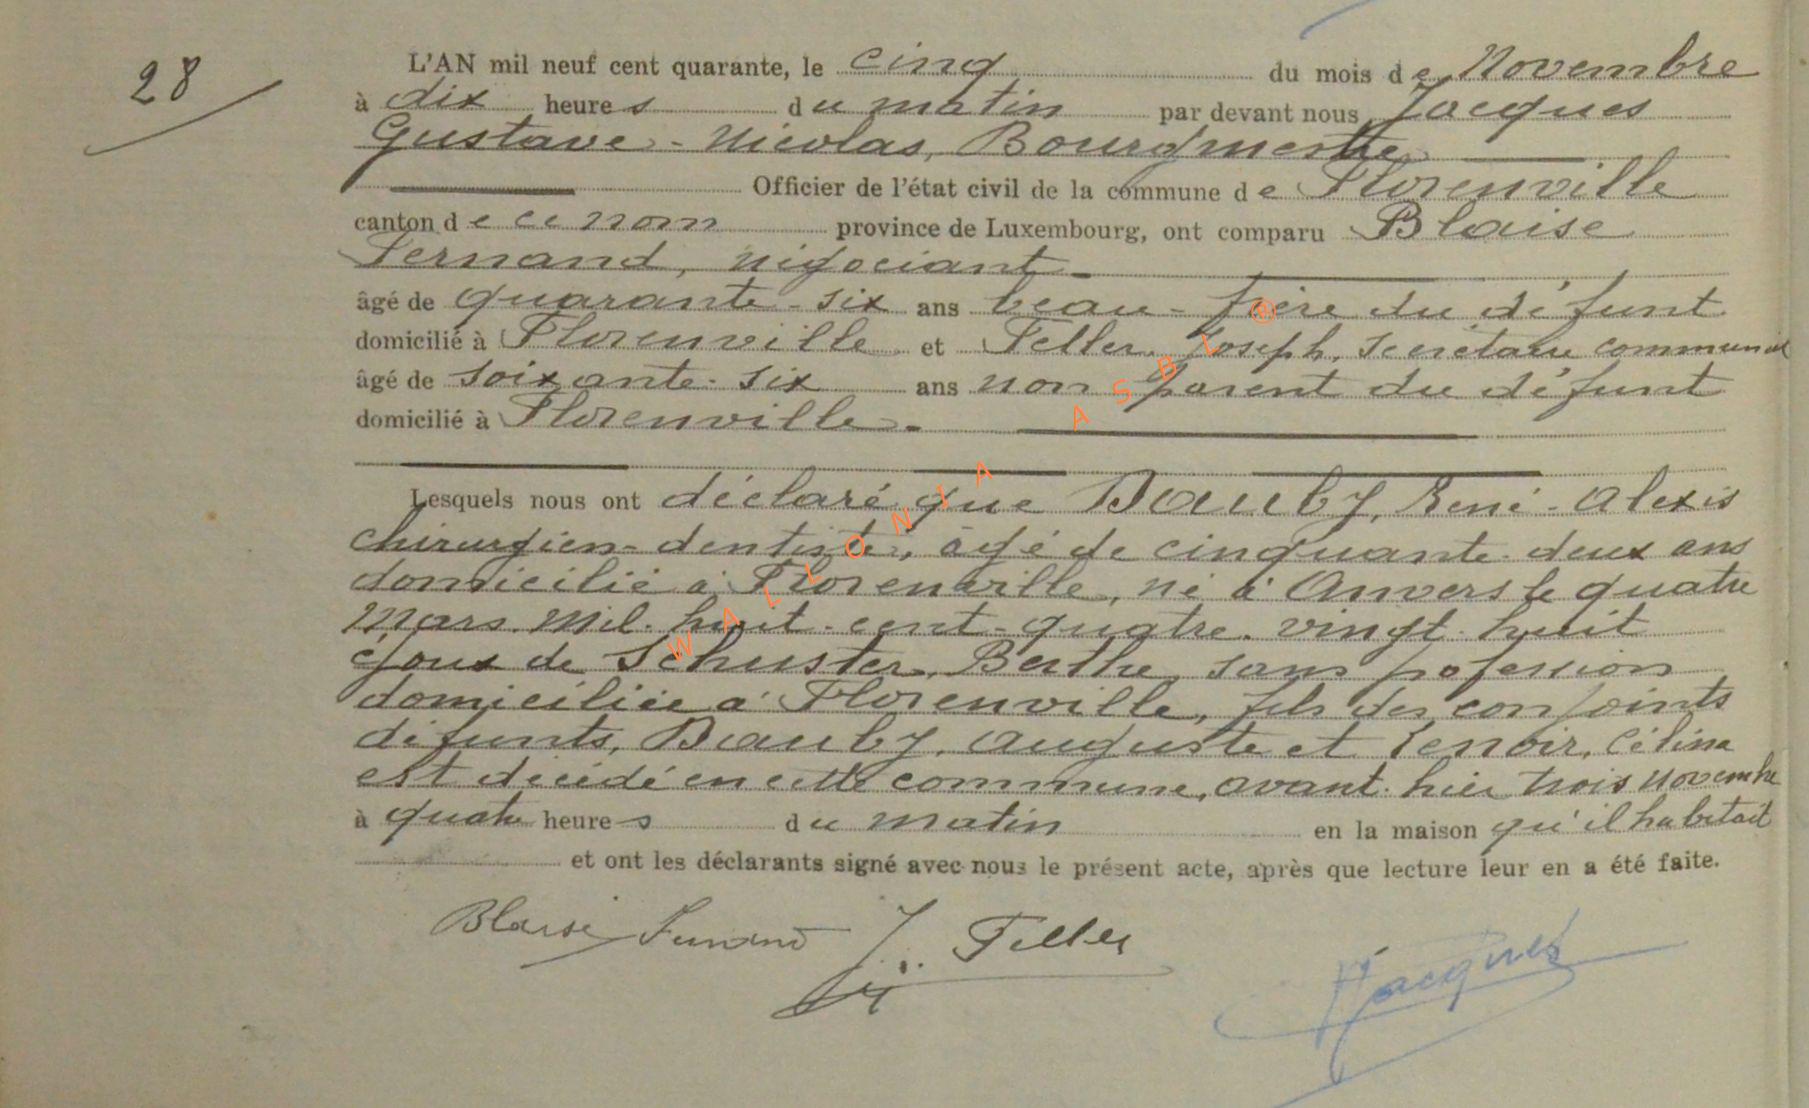 28
L'AN mil neuf cent quarante, le cinq du mois de Novembre
à dix heures du matin par devant nous Jacques
Gustave-Nicolas, Bourgmestre
Officier de l'état civil de la commune de Florenville
canton de ce nom province de Luxembourg, ont comparu Blaise
Fernand, négociant
âgé de quarante-six ans beau-frère du défunt
domicilié à Florenville et Feller, Joseph, secrétaire communal
âgé de soixante-six ans non parent du défunt
domicilié à Florenville.
Lesquels nous ont déclaré que Dauby, René-Alexis
chirurgien-dentiste, âgé de cinquante-deux ans
domicilié à Florenville, né à Anvers le quatre
Mars mil-huit-cent-quatre-vingt-huit
époux de Schuster, Berthe, sans pofession
domiciliée à Florenville, fils des conjoints
défunts, Dauby, Auguste et Lenoir, Célina
est décédé en cette commune, avant-hier trois novembre
à quatre heures du matin en la maison qu'il habitait
et ont les déclarants signé avec nous le présent acte, après que lecture leur en a été faite.
Blaise Fernand J. Feller
Jacques
WALLONIA ASBL ®